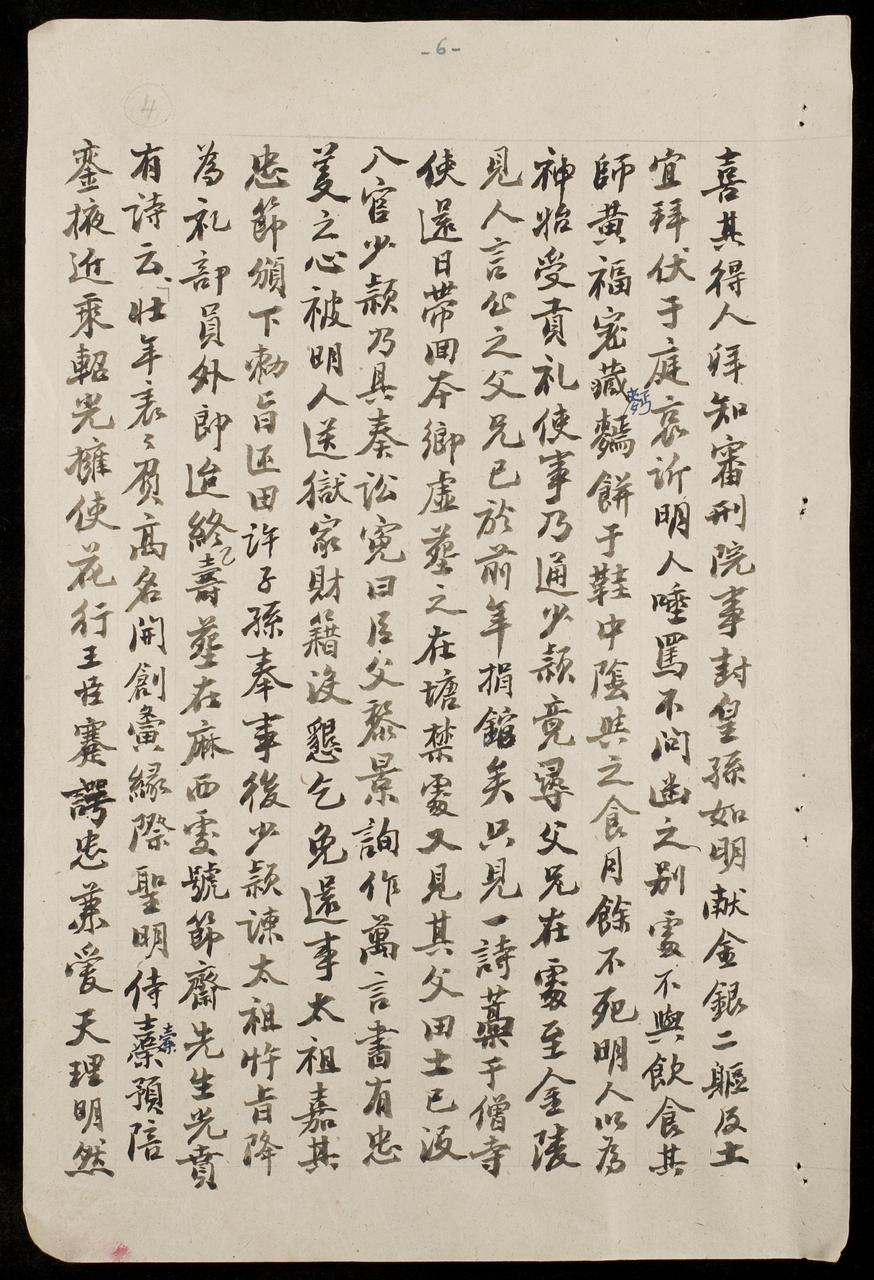 -6-
4
喜其得人拜知審刑院事封皇孫如明献金銀二軀及土
宜拜伏于庭哀訴明人唾罵不问幽之别䖏不與飲食其
師黄福宻藏䴢餅于鞋中陰與之食月餘不死明人以為
神始受貢礼使事乃通少頴竟尋父兄在䖏至金陵
見人言公之父兄已於前年捐館矣只見一詩藁于僧寺
使還日帶回本鄉虚塟之在塘禁䖏又見其父田土已没
入官少頴乃具奏訟寃曰臣父黎景詢作萬言書有忠
爱之心被明人送獄家財籍没懇乞免還事太祖嘉其
忠節頒下勅旨还田許子孫奉事後少頴諫太祖忤旨降
為礼部員外郎迨終壽塟在麻西䖏號節齋先生光賁
有詩云「壮年衮々負高名開創夤縁際聖明侍藁預陪
鑾掖近乘軺光擁使花行王臣蹇諤忠兼爱天理明然